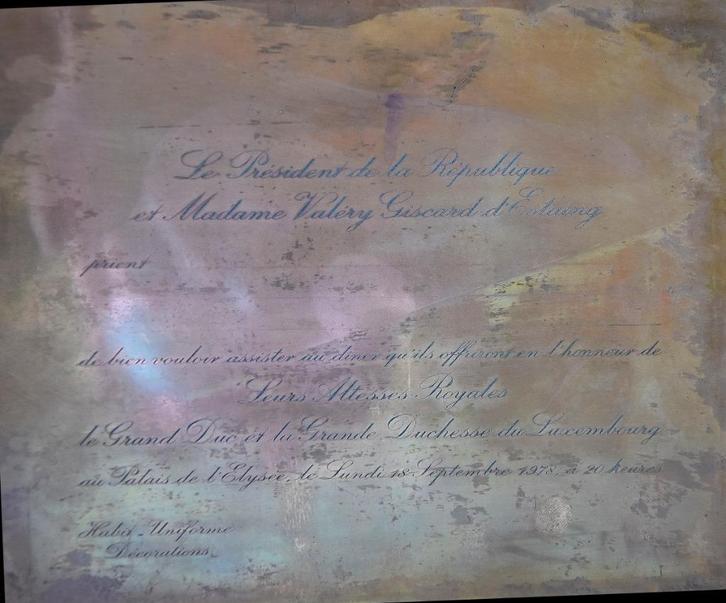 Le Président de la République
et Madame Valéry Giscard d'Estaing
prient
de bien vouloir assister au dîner qu'ils offriront en l'honneur de
Leurs Altesses Royales
le Grand Duc et la Grande Duchesse du Luxembourg
au Palais de l'Elysée, le Lundi 18 Septembre 1978, à 20 heures
Habit - Uniforme
Décorations